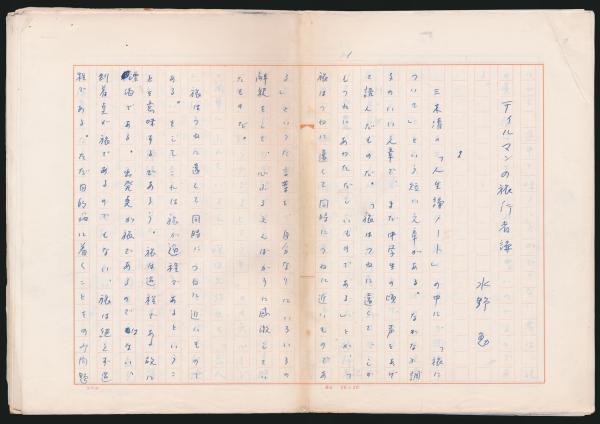 テイルマンの旅行者達
水野 勉
三木清の「人生論ノート」の中に、「旅に
ついて」という短い文章がある。なかなか調
子のいい文章で、まだ中学生の頃、声をあげ
て読んだものだ。「旅はつねに遠くて しか
もつねにあわただしいものである」とか「
旅はつねに遠くて同時につねに近いものであ
る」といった言葉を、自分なりにいろいろの
解釈をして、心ふるえんばかりに感激してい
たものだ。
「旅はつねに遠くて同時につねに近いもので
ある。そしてこれは旅が過程であるというこ
とを意味するであろう。旅は過程である故に
漂泊である。出発点が旅であるのではない、
到着点が旅であるのでもない、旅は絶えず過
程である。ただ目的地に着くことをのみ問題